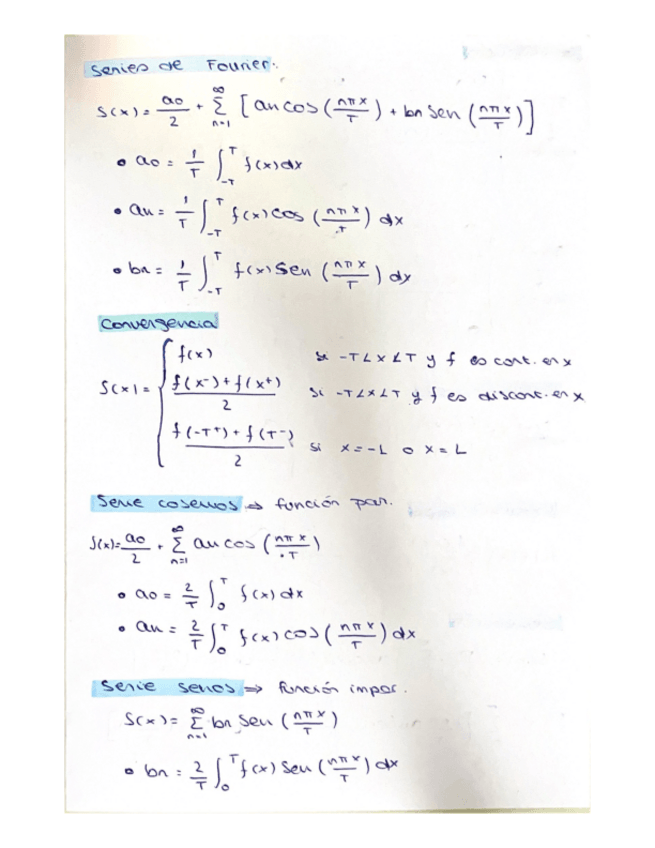 Series de Fourier.
S(x) = a0/2 + ∑_{n=1}^{∞} [an cos(nπx/T) + bn sen(nπx/T)]
• a0 = 1/T ∫_{-T}^{T} f(x)dx
• an = 1/T ∫_{-T}^{T} f(x) cos(nπx/T) dx
• bn = 1/T ∫_{-T}^{T} f(x) sen(nπx/T) dx
Convergencia
S(x) = { f(x) si -T<x<T y f es cont. en x
f(x⁻)+f(x⁺)/2 si -T<x<T y f es discont. en x
f(-T⁺)+f(T⁻)/2 si x=-L o x=L
Serie cosenos → función par.
S(x) = a0/2 + ∑_{n=1}^{∞} an cos(nπx/T)
• a0 = 2/T ∫_0^T f(x) dx
• an = 2/T ∫_0^T f(x) cos(nπx/T) dx
Serie senos ⇒ función impar.
S(x) = ∑_{n=1}^{∞} bn sen(nπx/T)
• bn = 2/T ∫_0^T f(x) sen(nπx/T) dx